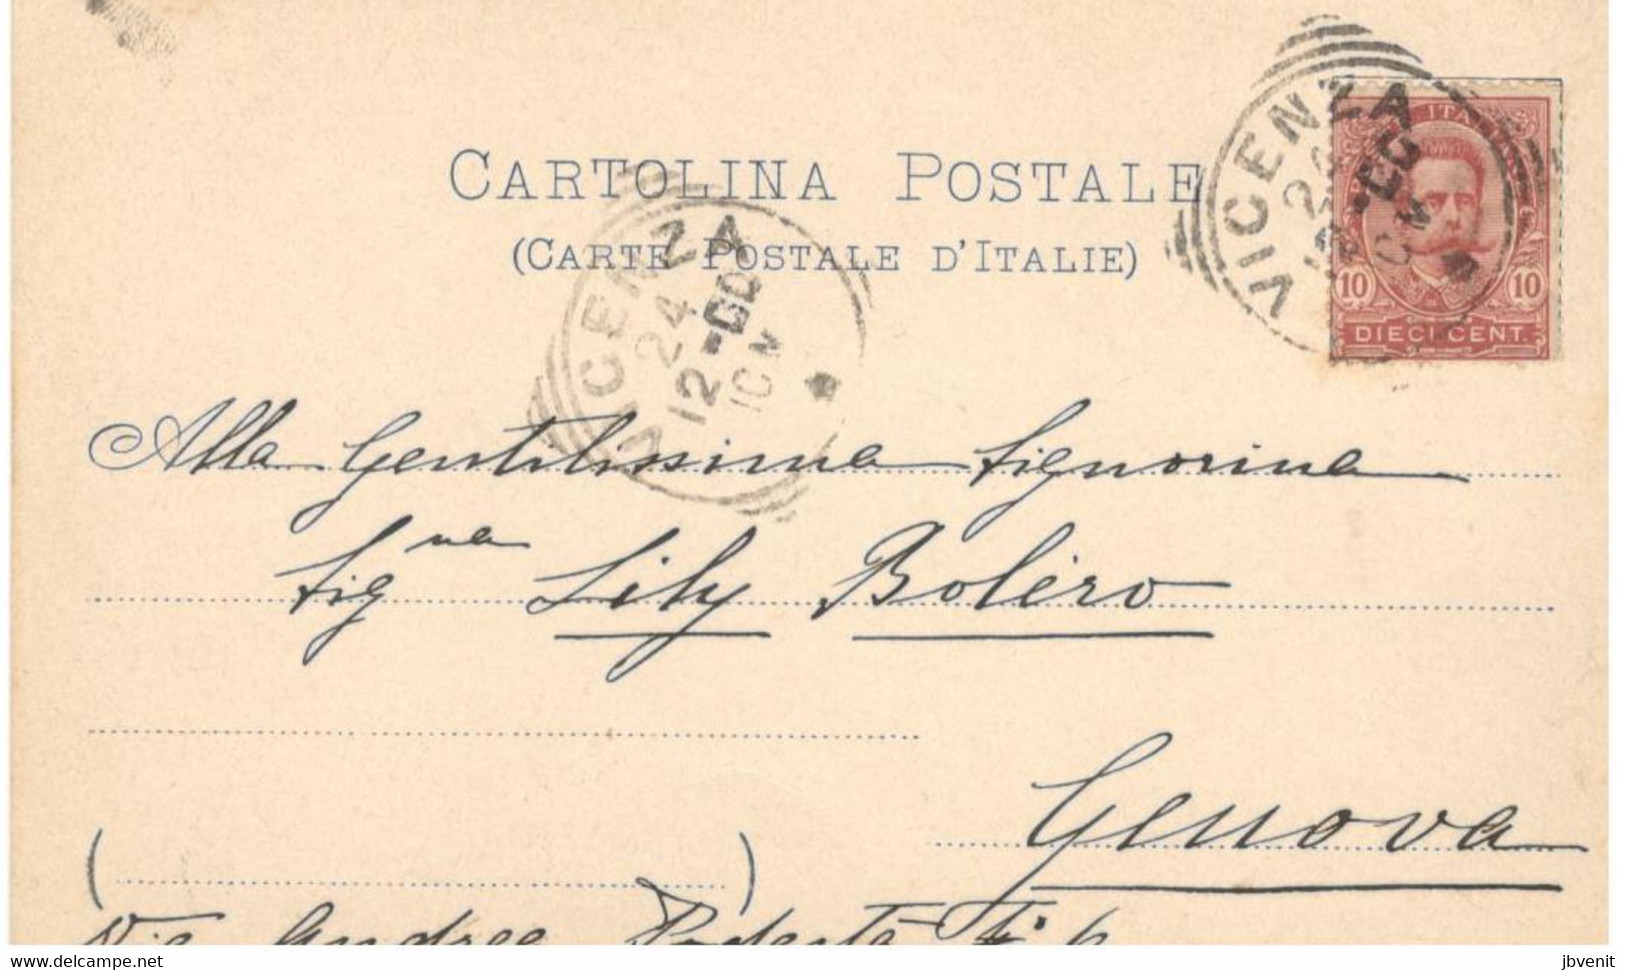 CARTOLINA POSTALE
(CARTE POSTALE D'ITALIE)
VICENZA
24
12-00
10 M
VICENZA
10 10
DIECI CENT.
Alla Gentilissima Signorina
Signa Lily Bolèro
Genova
( )
Via Andrea Podestà N° 6
www.delcampe.net
jbvenit